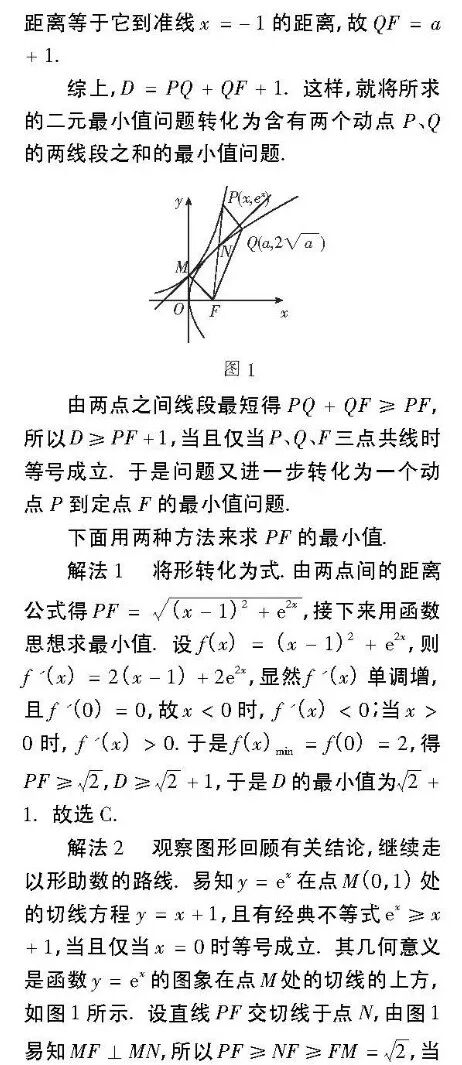 距离等于它到准线 x = -1 的距离,故 QF = a
+ 1.
综上, D = PQ + QF + 1. 这样,就将所求
的二元最小值问题转化为含有两个动点 P、Q
的两线段之和的最小值问题.
y
P(x,eˣ)
N
Q(a,2√a)
M
O
F
x
图 1
由两点之间线段最短得 PQ + QF ≥ PF,
所以 D ≥ PF + 1,当且仅当 P、Q、F 三点共线时
等号成立. 于是问题又进一步转化为一个动
点 P 到定点 F 的最小值问题.
下面用两种方法来求 PF 的最小值.
解法 1 将形转化为式. 由两点间的距离
公式得 PF = √((x - 1)² + e²ˣ),接下来用函数
思想求最小值. 设 f(x) = (x - 1)² + e²ˣ,则
f ′(x) = 2(x - 1) + 2e²ˣ,显然 f ′(x) 单调增,
且 f ′(0) = 0,故 x < 0 时, f ′(x) < 0;当 x >
0 时, f ′(x) > 0. 于是 f(x)min = f(0) = 2,得
PF ≥ √2, D ≥ √2 + 1,于是 D 的最小值为 √2 +
1. 故选 C.
解法 2 观察图形回顾有关结论,继续走
以形助数的路线. 易知 y = eˣ 在点 M(0,1) 处
的切线方程 y = x + 1,且有经典不等式 eˣ ≥ x
+ 1,当且仅当 x = 0 时等号成立. 其几何意义
是函数 y = eˣ 的图象在点 M 处的切线的上方,
如图 1 所示. 设直线 PF 交切线于点 N,由图 1
易知 MF ⊥ MN,所以 PF ≥ NF ≥ FM = √2,当